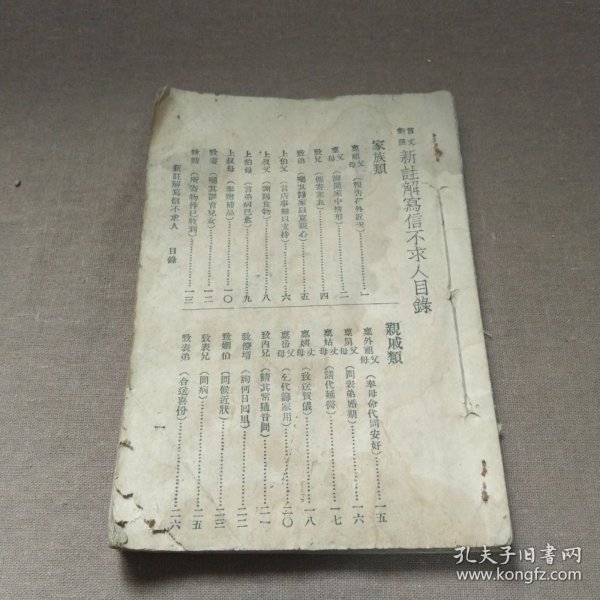 言文對照 新註解寫信不求人目錄
家族類
稟祖父母（報告在外近況）……一
稟父母（詢問家中情形）……二
致兄（催寄寒衣）……四
致弟（囑其歸家以寬親心）……五
上伯父（言店事難以支持）……六
上叔父（謝賜食物）……八
上伯母（言弟病已愈）……九
上叔母（奉贈補品）……一〇
致妻（囑其訓育兒女）……一二
致嫂（所寄物件已收到）……一三
新註解寫信不求人 目錄
親戚類
稟外祖父母（奉母命代問安好）……一五
稟舅父母（問表弟婚期）……一六
稟姑丈母（請代延醫）……一七
稟姨丈母（致送賀儀）……一八
稟岳父母（乞代籌家用）……二〇
致內兄（請其常通音問）……二一
致僚壻（詢何日回里）……二二
致姻伯（問候近狀）……二三
致表兄（問病）……二五
致表弟（合送喜份）……二六
一
孔夫子旧書网
www.kongfz.com